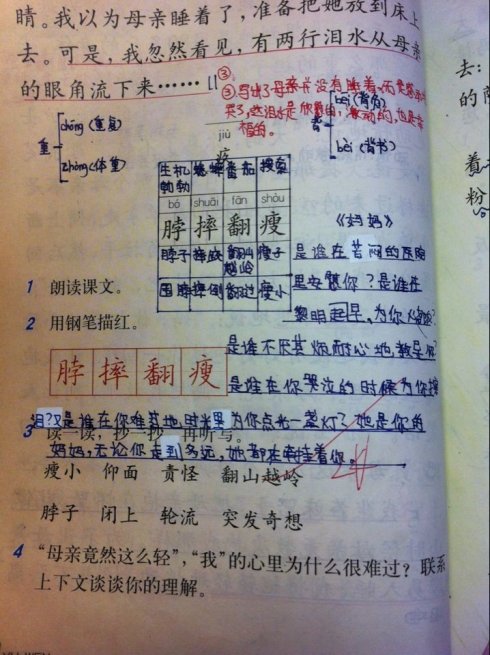 睛。我以为母亲睡着了，准备把她放到床上
去。可是，我忽然看见，有两行泪水从母亲
的眼角流下来……
③
③写出了母亲并没有睡着，而是
哭了，这泪水是欣慰的，激动的，也是幸
福的。
重
chóng（重复）
zhòng（体重）
背
bēi（背负）
bèi（背书）
jiū
生机勃勃 蟋蟀 番茄 搜索
bó shuāi fān shòu
脖 摔 翻 瘦
脖子 摔跤 翻山越岭 瘦子
围脖 摔倒 翻过 瘦小
《妈妈》
是谁在苦闷的医院
里安慰你？是谁在
黎明起早，为你
是谁不厌其烦耐心地教导你？
是谁在你哭泣的时候为你擦
泪？又是谁在你难过时光里为你点光一盏灯？她是你的
妈妈，无论你走到多远，她都在牵挂着你。
1 朗读课文。
2 用钢笔描红。
脖 摔 翻 瘦
3 读一读，抄一抄，再听写。
瘦小 仰面 责怪 翻山越岭
脖子 闭上 轮流 突发奇想
4 “母亲竟然这么轻”，“我”的心里为什么很难过？联系
上下文谈谈你的理解。
去：
的
着
粉